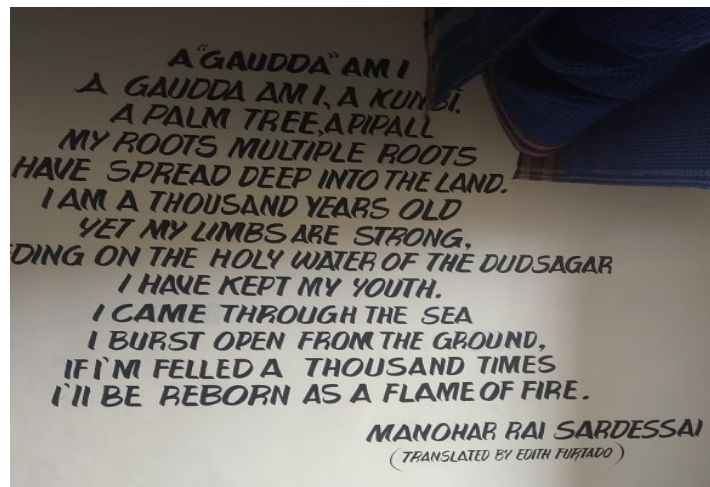 A "GAUDDA" AM I
A GAUDDA AM I, A KUNBI.
A PALM TREE, A PIPALL
MY ROOTS MULTIPLE ROOTS
HAVE SPREAD DEEP INTO THE LAND.
I AM A THOUSAND YEARS OLD
YET MY LIMBS ARE STRONG,
ON THE HOLY WATER OF THE DUDSAGAR
I HAVE KEPT MY YOUTH.
I CAME THROUGH THE SEA
I BURST OPEN FROM THE GROUND,
IF I'M FELLED A THOUSAND TIMES
I'll BE REBORN AS A FLAME OF FIRE.
MANOHAR RAI SARDESSAI
(TRANSLATED BY EDITH FURTADO)